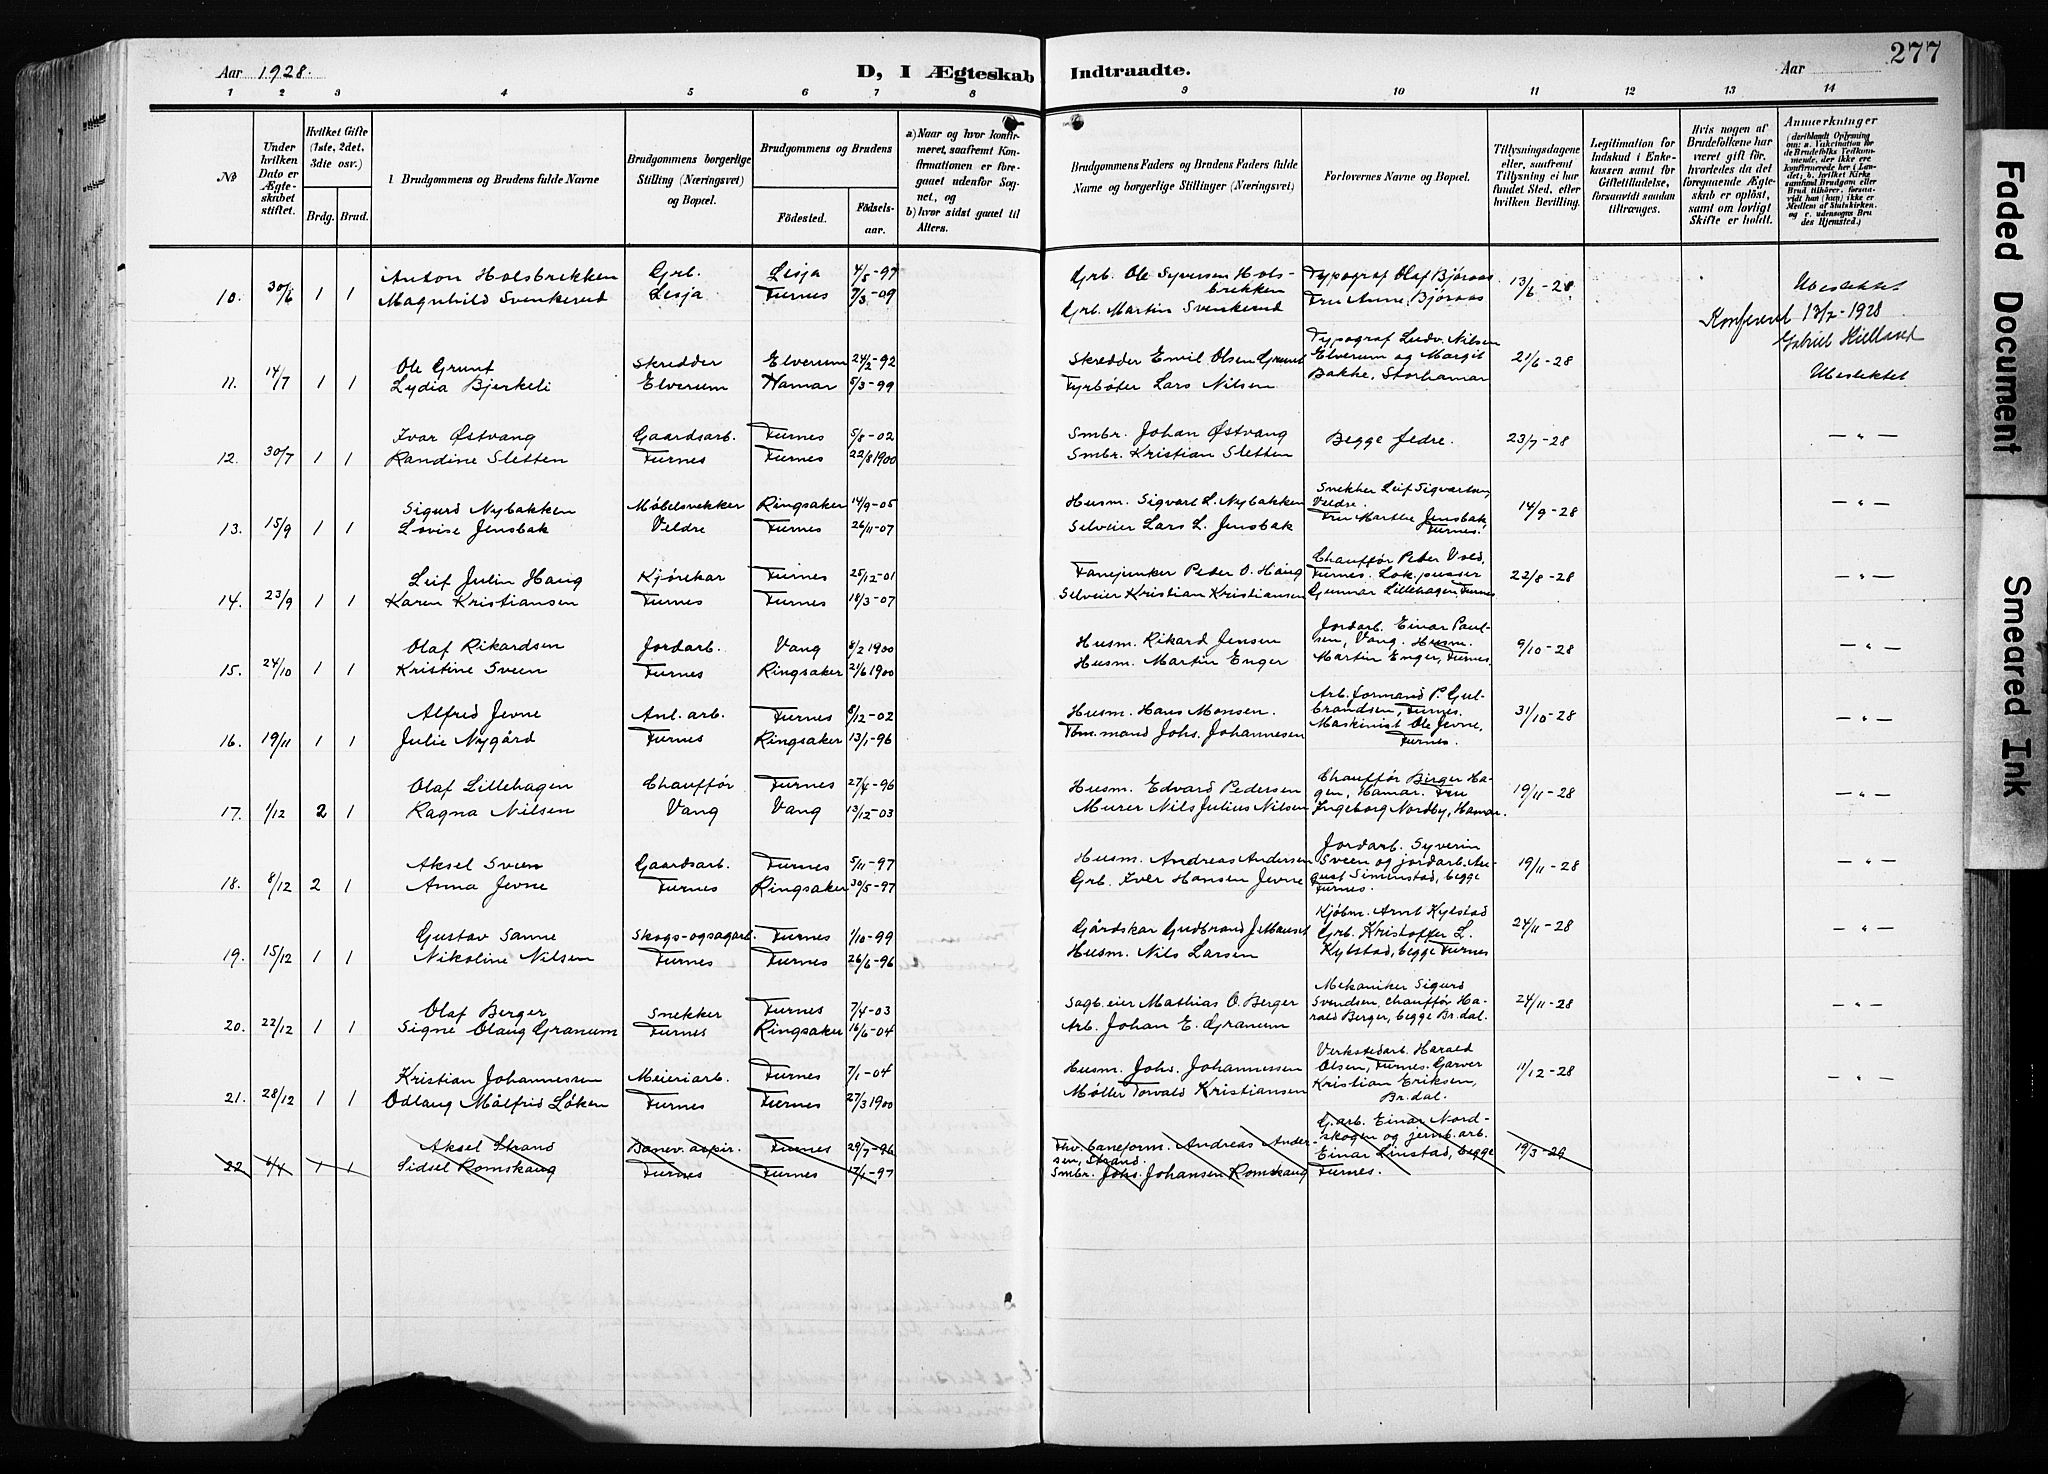 277
Aar 1928.
D, I Ægteskab Indtraadte.
Aar
1 2 3 4 5 6 7 8 9 10 11 12 13 14
No
Under hvilken Dato er Ægteskabet stiftet.
Hvilket Gifte (1ste, 2det, 3die osv.)
Brdg. Brud.
Brudgommens og Brudens fulde Navne
Brudgommens borgerlige Stilling (Næringsvei) og Bopæl.
Brudgommens og Brudens
Fødested.
Fødsels-aar.
a) Naar og hvor konfirmeret, saafremt Konfirmationen er foregaaet udenfor Sognet, og
b) hvor sidst gaaet til Alters.
Brudgommens Faders og Brudens Faders fulde Navne og borgerlige Stillinger (Næringsvei)
Forlovernes Navne og Bopæl.
Tillysningsdagene eller, saafremt Tillysning ei har fundet Sted, efter hvilken Bevilling.
Legitimation for Indskud i Enkekassen samt for Giftetilladelse, forsaavidt saadan tiltrænges.
Hvis nogen af Brudefolkene har været gift før, hvorledes da det foregaaende Ægteskab er opløst, samt om lovligt Skifte er holdt.
Anmerkninger
10. 30/6 1 1 Anton Holsbrekken Grb. Lesja 4/5-97 Grb. Ole Syversen Holsbrekken Typograf Olaf Bjøraas 13/6-28 Ubeslektet
Magnhild Svenkerud Lesja Furnes 7/3-09 Grb. Martin Svenkerud Fru Anne Bjøraas
Konferert 13/7-1928
Gabriel Kielland
11. 14/7 1 1 Ole Grunt Skredder Elverum 24/2-92 Skredder Emil Olsen Grunt Typograf Ludv. Nilsen Elverum og Margit 21/6-28
Lydia Bjerkeli Elverum Hamar 5/3-99 Fyrbøter Lars Nilsen Bakke, Storhamar Ubeslektet
12. 30/7 1 1 Ivar Østvang Gaardsarb. Furnes 5/8-02 Smbr. Johan Østvang Begge fedre. 23/7-28 — " —
Randine Sletten Furnes Furnes 22/8 1900 Smbr. Kristian Sletten
13. 15/9 1 1 Sigurd Nybakken Møbelsnekker Ringsaker 14/9-05 Husm. Sigvart L. Nybakken Snekker Leif Sigvartsen, Veldre. 14/9-28 — " —
Lovise Jensbak Veldre Furnes 26/11-07 Selveier Lars L. Jensbak Fru Marthe Jensbak, Furnes.
14. 23/9 1 1 Leif Julin Haug Kjørekar Furnes 25/12-01 Fanejunker Peder O. Haug Chauffør Peder Vold, Furnes. Lok.pusser 22/8-28 — " —
Karen Kristiansen Furnes Furnes 18/3-07 Selveier Kristian Kristiansen Gunnar Lillehagen, Furnes
15. 24/10 1 1 Olaf Rikardsen Jordarb. Vang 8/2 1900 Husm. Rikard Jensen Jordarb. Einar Paulsen, Vang. Husm. 9/10-28 — " —
Kristine Sveen Furnes Ringsaker 21/6 1900 Husm. Martin Enger Martin Enger, Furnes.
16. 19/11 1 1 Alfred Jevne Anl. arb. Furnes 8/12-02 Husm. Hans Monsen. Arb. formand P. Gulbrandsen, Furnes. 31/10-28 — " —
Julie Nygård Furnes Ringsaker 13/1-96 Tbm.mand Johs. Johannesen Maskinist Ole Jevne, Furnes.
17. 1/12 2 1 Olaf Lillehagen Chauffør Furnes 27/4-96 Husm. Edvard Pedersen Chauffør Birger Hagen, Hamar. Fru 19/11-28 — " —
Ragna Nilsen Vang Vang 13/12-03 Murer Nils Julius Nilsen Ingeborg Nordby, Hamar.
18. 8/12 2 1 Aksel Sveen Gaardsarb. Furnes 5/11-97 Husm. Andreas Andersen Jordarb. Syverin Sveen og jordarb. Au- 19/11-28 — " —
Anna Jevne Furnes Ringsaker 30/5-97 Grb. Iver Hansen Jevne gust Simenstad, begge Furnes.
19. 15/12 1 1 Gustav Sanne Skogs-og sagarb. Furnes 1/10-99 Gårdskar Gudbrand J. Kjøbm. Arnt Kylstad Grb. Kristoffer L. 24/11-28 — " —
Nikoline Nilsen Furnes Furnes 26/6-96 Husm. Nils Larsen Kylstad, begge Furnes
20. 22/12 1 1 Olaf Berger Snekker Furnes 7/4-03 Sagb.eier Mathias O. Berger Mekaniker Sigurd Svendsen, chauffør Ha- 24/11-28 — " —
Signe Olaug Granum Furnes Ringsaker 16/6-04 Arb. Johan E. Granum rald Berger, begge Br.dal.
21. 28/12 1 1 Kristian Johannessen Meieriarb. Furnes 7/1-04 Husm. Johs. Johannessen Verkstedarb. Harald Olsen, Furnes. Garver 11/12-28 — " —
Odlaug Målfrid Løken Furnes Furnes 27/3 1900 Møller Torvald Kristiansen Kristian Eriksen, Br.dal.
22 6/4 1 1 Aksel Strand Banev. aspir. Furnes 29/7-96 Fhv. baneform. Andreas Andersen, Strand. G.arb. Einar Nordskogen og jernb.arb. 19/3-29
Sidsel Romskaug Furnes Furnes 17/1-97 Smbr. Johs. Johansen Romskaug Einar Linstad, begge Furnes.
Faded Document
Smeared Ink